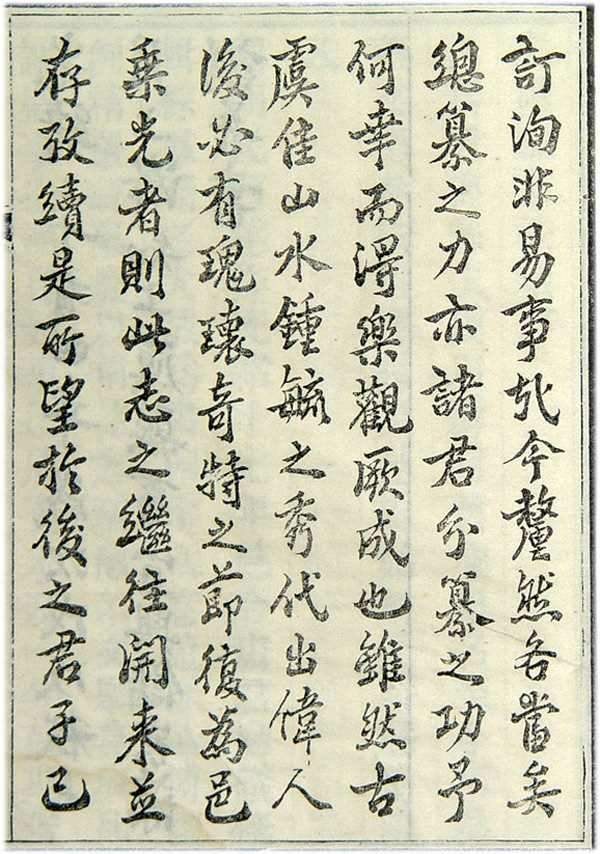 訂洵非易事今釐然各當矣
總纂之力亦諸君分纂之功予
何幸而得樂觀厥成也雖然古
虞佳山水鍾毓之秀代出偉人
後必有瑰瓌奇特之節復為邑
乘光者則此志之繼往開来並
存攷續是所望於後之君子已